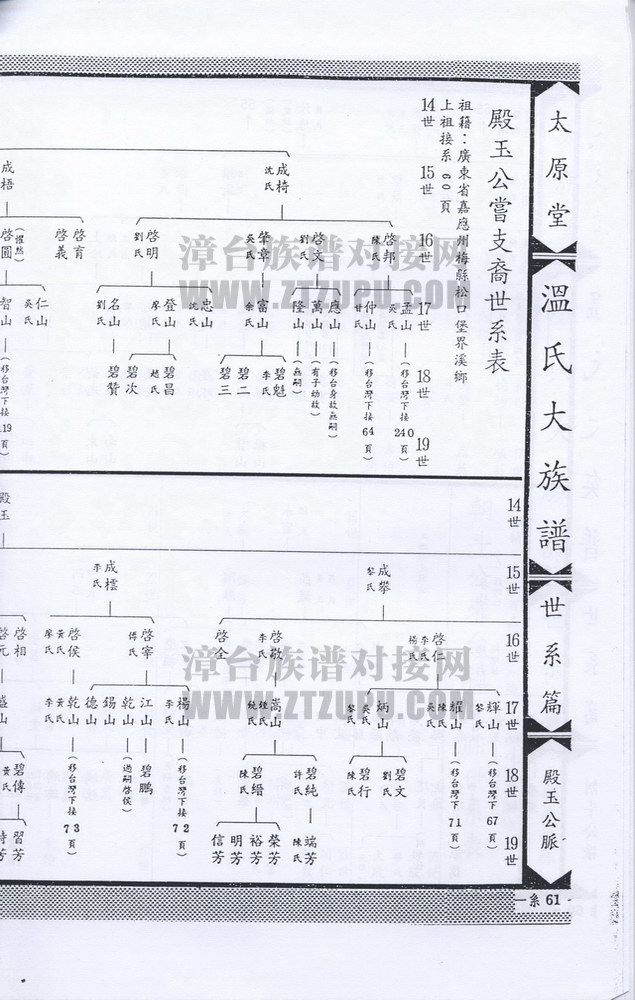 太原堂
溫氏大族譜
世系篇
殿玉公脈
系 61
殿玉公嘗支裔世系表
祖籍：廣東省嘉應州梅縣松口堡界溪鄉
上祖接系60頁
14世
15世
16世
17世
18世
19世
成椅
沈氏
成梧
啓邦
陳氏
啓文
劉氏
肇章
吳氏
啓明
劉氏
啓育
啓義
啓圓
孟山
吳氏
仲山
甘氏
應山
萬山
隆山
富山
余氏
忠山
沈氏
登山
廖氏
名山
劉氏
仁山
吳氏
智山
(移台灣下接240頁)
(移台灣下接64頁)
(移台身故無嗣)
(有子幼故)
(無嗣)
碧魁
李氏
碧二
碧三
碧昌
趙氏
碧次
碧贊
14世
15世
16世
17世
18世
19世
殿玉
成攀
黎氏
成樰
李氏
啓仁
李氏
楊氏
啓敬
李氏
啓全
啓宰
傅氏
啓侯
黃氏
廖氏
啓相
啓元
輝山
黎氏
耀山
陳氏
吳氏
炳山
吳氏
黎氏
嵩山
鍾氏
饒氏
楊山
李氏
江山
乾山
錫山
德山
乾山
黃氏
李氏
盛山
(移台灣下接67頁)
(移台灣下接71頁)
碧文
劉氏
碧行
陳氏
碧純
許氏
碧縉
陳氏
(移台灣下接72頁)
碧鵬
(過嗣啓侯)
(移台灣下接73頁)
碧傳
黃氏
端芳
陳氏
榮芳
裕芳
明芳
信芳
習芳
漳台族谱对接网
WWW.ZTZUPU.COM
漳台族谱对接网
WWW.ZTZUPU.COM